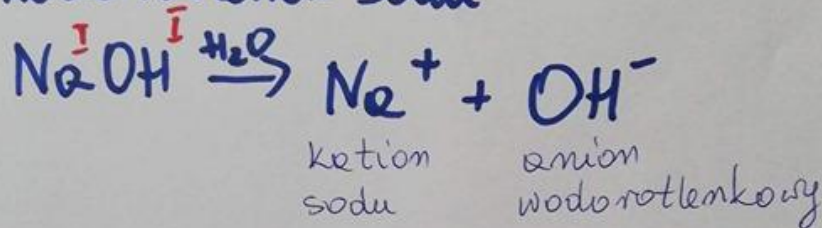 Na^I OH^I →(H₂O) Na⁺ + OH⁻
kation anion
sodu wodorotlenkowy